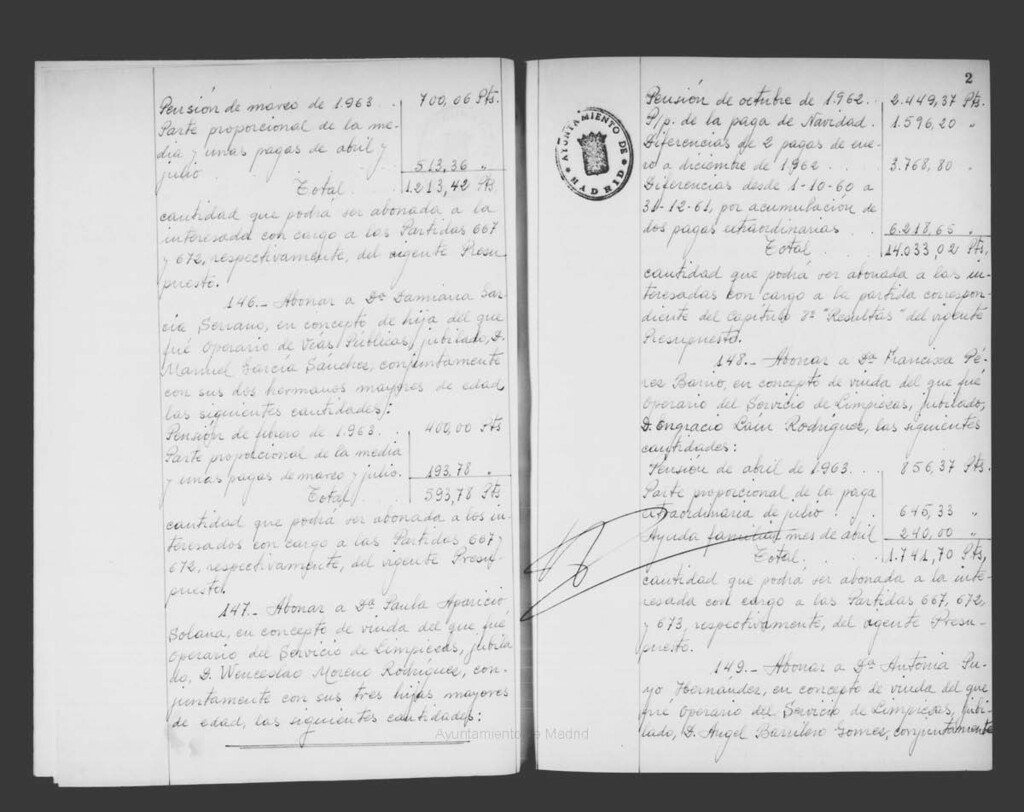 Pensión de marzo de 1.963 700,06 Pts.
Parte proporcional de la me-
dia y unas pagas de abril y
julio 513,36 "
Total 1.213,42 Pts,
cantidad que podrá ser abonada a la
interesada con cargo a las Partidas 667
y 672, respectivamente, del vigente Presu
puesto.
146.- Abonar a Dª Damiana Gar
cía Serrano, en concepto de hija del que
fué Operario de Vías Públicas, jubilado, D.
Manuel García Sánchez, conjuntamente
con sus dos hermanos mayores de edad
las siguientes cantidades:
Pensión de febrero de 1.963. 400,00 Pts
Parte proporcional de la media
y unas pagas de marzo y julio. 193,78 "
Total 593,78 Pts
cantidad que podrá ser abonada a los in
teresados con cargo a las Partidas 667 y
672, respectivamente, del vigente Presu-
puesto.
147.- Abonar a Dª Paula Aparicio
Solana, en concepto de viuda del que fué
Operario del Servicio de Limpiezas, jubila
do, D. Wenceslao Moreno Rodríguez, con-
juntamente con sus tres hijas mayores
de edad, las siguientes cantidades:
2
AYUNTAMIENTO DE MADRID
Pensión de octubre de 1.962. 2.449,37 Pts.
P/p. de la paga de Navidad. 1.596,20 "
Diferencias de 2 pagas de ene-
ro a diciembre de 1.962 3.768,80 "
Diferencias desde 1-10-60 a
31-12-61, por acumulación de
dos pagas extraordinarias 6.218,65 "
Total 14.033,02 Pts,
cantidad que podrá ser abonada a las in-
teresadas con cargo a la partida correspon-
diente del Capítulo 8º "Resultas" del vigente
Presupuesto.
148.- Abonar a Dª Francisca Pé-
rez Barrio, en concepto de viuda del que fué
Operario del Servicio de Limpiezas, jubilado,
D. Engracio Laín Rodríguez, las siguientes
cantidades:
Pensión de abril de 1.963. 856,37 Pts.
Parte proporcional de la paga
extraordinaria de julio 645,33 "
Ayuda familiar mes de abril 240,00 "
Total 1.741,70 Pts,
cantidad que podrá ser abonada a la inte-
resada con cargo a las Partidas 667, 672,
y 673, respectivamente, del vigente Presu-
puesto.
149.- Abonar a Dª Antonia Pu-
yo Hernández, en concepto de viuda del que
fué Operario del Servicio de Limpiezas, jubi-
lado, D. Angel Barrilero Gomez, conjuntamente
Ayuntamiento de Madrid